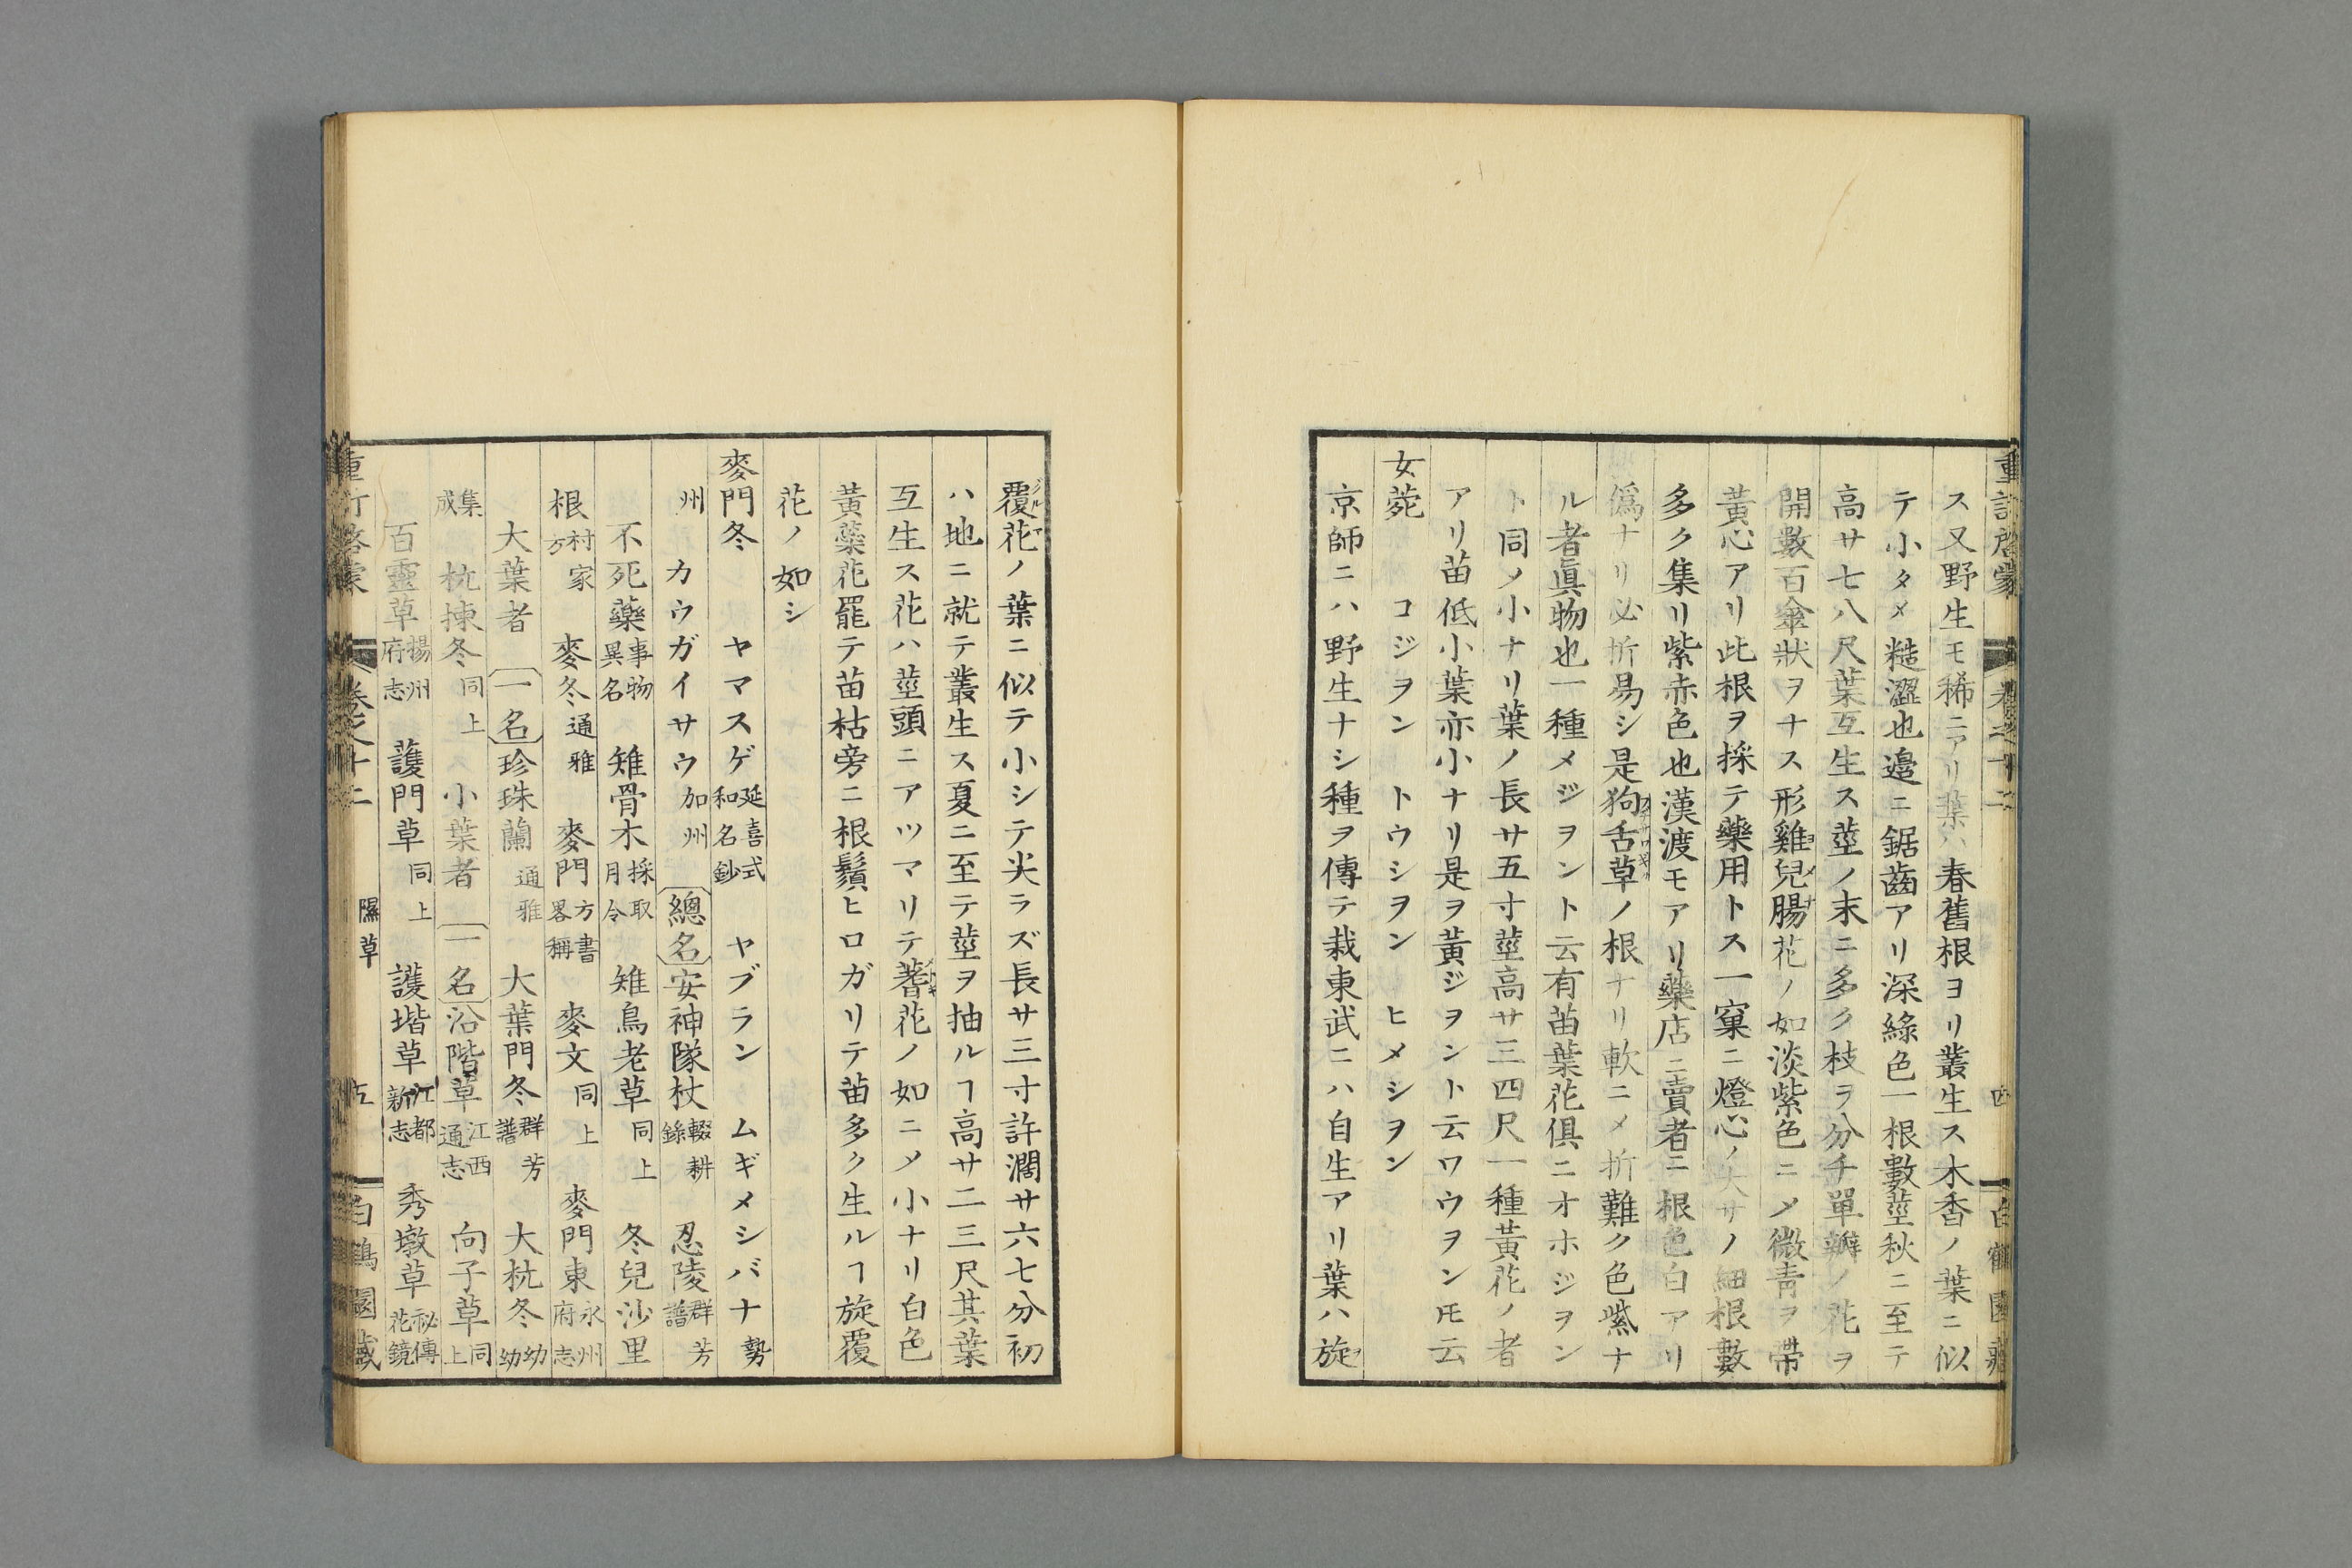 ス又野生モ稀ニアリ葉ハ春舊根ヨリ叢生ス木香ノ葉ニ似
テ小タメ糙澀也邉ニ鋸齒アリ深綠色一根數莖秋ニ至テ
高サ七八尺葉互生ス莖ノ末ニ多ク枝ヲ分チ單瓣ノ花ヲ
開數百傘狀ヲナス形雞兒腸花ノ如淡紫色ニメ微青ヲ帶
黃心アリ此根ヲ採テ藥用トス一窠ニ燈心ノ大サノ細根數
多ク集リ紫赤色也漢渡モアリ藥店ニ賣者ニ根色白アリ
僞ナリ必折易シ是狗舌草ノ根ナリ軟ニメ折難ク色紫ナ
ル者眞物也一種メジヲント云有苗葉花俱ニオホジヲン
ト同メ小ナリ葉ノ長サ五寸莖高サ三四尺一種黃花ノ者
アリ苗低小葉亦小ナリ是ヲ黃ジヲント云ワウヲンㇳモ云
女菀 コジヲン トウシヲン ヒメシヲン
京師ニハ野生ナシ種ヲ傳テ栽東武ニハ自生アリ葉ハ旋
覆花ノ葉ニ似テ小シテ尖ラズ長サ三寸許濶サ六七分初
ハ地ニ就テ叢生ス夏ニ至テ莖ヲ抽ルヿ高サ二三尺其葉
互生ス花ハ莖頭ニアツマリテ蓍花ノ如ニメ小ナリ白色
黃蘂花罷テ苗枯旁ニ根鬚ヒロガリテ苗多ク生ルヿ旋覆
花ノ如シ
麥門冬 ヤマスゲ 延喜式和名鈔 ヤブラン ムギメシバナ 勢
州 カウガイサウ 加州 總名 安神隊杖 輟耕錄 忍陵 群芳譜
不死藥 事物異名 雉骨木 採取月令 雉鳥老草 同上 冬兒沙里
根 村家方 麥冬 通雅 麥門 方書畧稱 麥文 同上 麥門東 永州府志
大葉者 一名 珍珠蘭 通雅 大葉門冬 群芳譜 大杭冬 幼幼
集成 杭揀冬 同上 小葉者 一名 沿階草 江西通志 向子草 同上
百靈草 揚州府志 護門草 同上 護堦草 江都新志 秀墩草 祕傳花鏡
重訂啓蒙 卷之十二 隰草 五 白鶴園藏